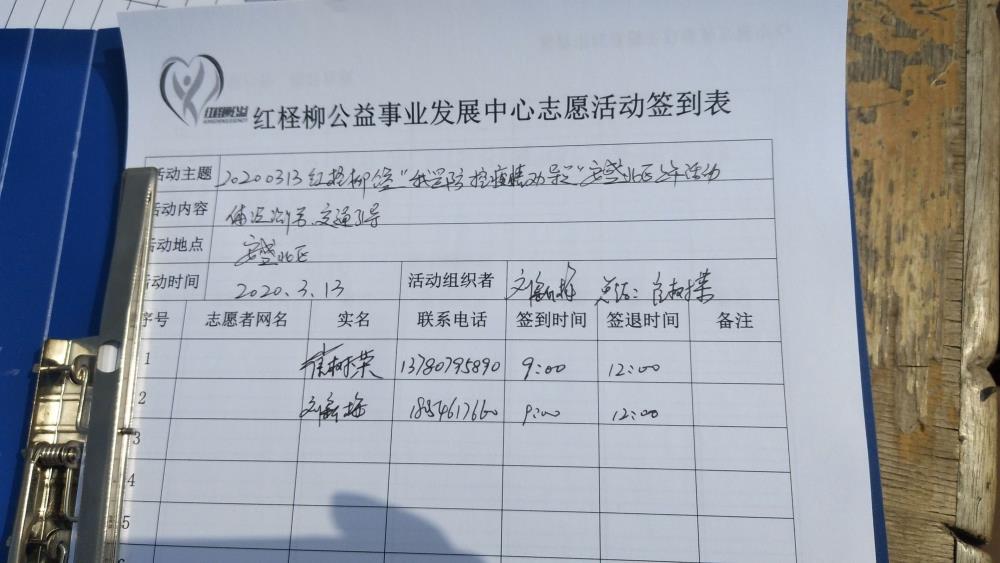 红柽柳公益事业发展中心志愿活动签到表
活动主题 20200313红柽柳公益"我是防控疫情劝导
活动内容 体温测号、交通引导
活动地点 安盛北区
活动时间 2020.3.13 活动组织者
序号 志愿者网名 实名 联系电话 签到时间 签退时间 备注
1 崔树荣 13780795890 9:00 12:00
2 9:00 12:00
3
4
5